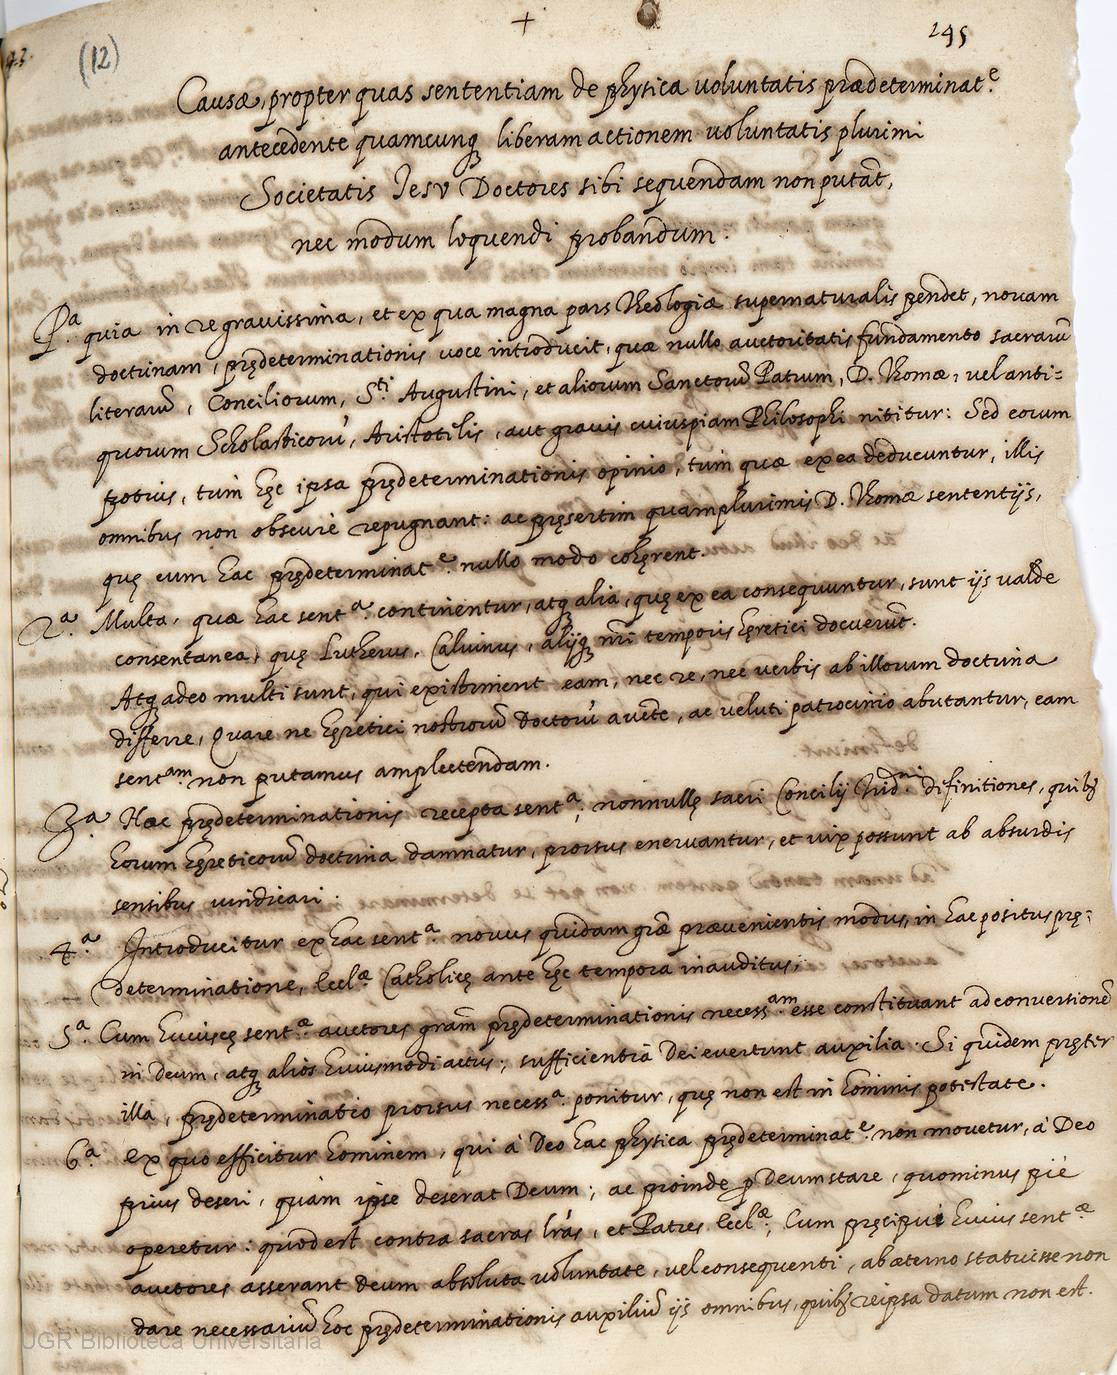 +
295
43.
(12)
Causæ, propter quas sententiam de physica voluntatis prædeterminat.e
antecedente quamcunq liberam actionem voluntatis plurimi
Societatis Jesv Doctores sibi sequendam non putāt,
nec modum loquendi probandum.
P.a quia in re gravissima, et ex qua magna pars Theologiæ supernaturalis pendet, novam
doctrinam, prędeterminationis voce introducit, quæ nullo auctoritatis fundamento sacrarū
literarū, Conciliorum, S.ti Augustini, et aliorum Sanctorū Patrum, D. Thomæ, vel anti=
quorum Scholasticorū, Aristotelis, aut gravis cuiuspiam Philosophi nititur: Sed eorum
potius, tum hęc ipsa prędeterminationis opinio, tum quæ ex ea deducuntur, illis
omnibus non obscurè repugnant: ac pręsertim quamplurimis D. Thomæ sententijs,
quę cum hac prędeterminat.e nullo modo cohęrent.
2.a Multa, quæ hac sent.a continentur, atq alia, quę ex ea consequuntur, sunt ijs valde
consentanea, quę Lutherus, Calvinus, alijq nr̄i temporis hęretici docuerūt.
Atq adeo multi sunt, qui existiment eam, nec re, nec verbis ab illorum doctrina
differre, Quare ne hęretici nostrorū Doctorū aucte, ac veluti patrocinio abutantur, eam
sent.am non putamus amplectendam.
3.a Hac prędeterminationis recepta sent.a, nonnullę sacri Concilij Trid.ni difinitiones, quibq
horum hęreticorū doctrina damnatur, prorsus enervantur, et vix possunt ab absurdis
sensibus vindicari.
4.a Introducitur ex hac sent.a novus quidam grāæ prævenientis modus, in hac positus prę=
determinatione, Eccl.æ Catholicę ante hęc tempora inauditus.
5.a Cum huiuscę sent.æ auctores grām prędeterminationis necess.am esse constituant ad conversionē
in Deum, atq alios huiusmodi actus, sufficientia Dei evertunt auxilia. Si quidem pręter
illa, prędeterminatio prorsus necess.a ponitur, quę non est in hominis potestate.
6.a Ex quo efficitur hominem, qui à Deo hac physica prędeterminat.e non movetur, à Deo
prius deseri, quàm ipse deserat Deum; ac proinde p Deum stare, quominus piè
operetur: quod est contra sacras lrās, et Patres Eccl.æ, Cum pręcipui huius sent.æ
auctores asserant Deum absoluta voluntate, vel consequenti, ab æterno statuisse non
dare necessariū hoc prędeterminationis auxiliū ijs omnibus, quibq reipsa datum non est.
UGR Biblioteca Universitaria